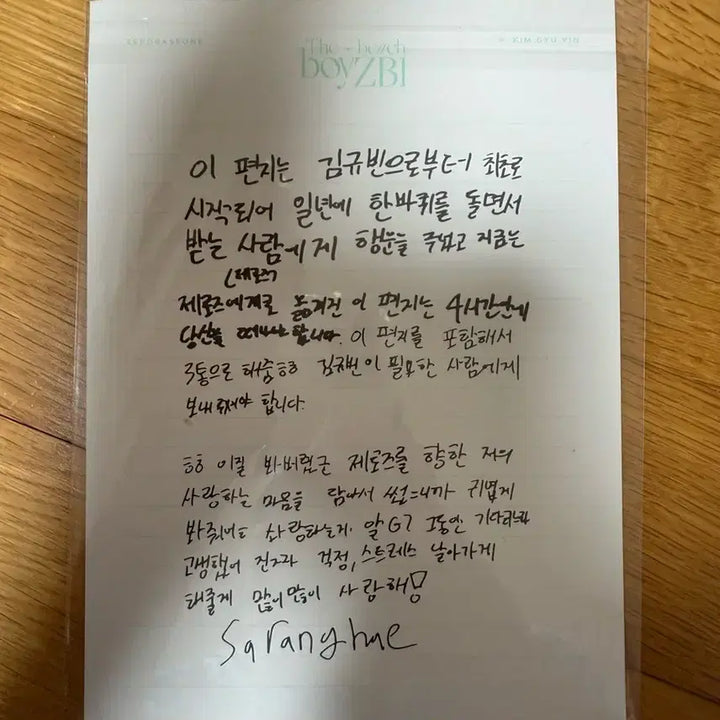 ZEROBASEONE
KIM GYU VIN
The beach
boyZB1
이 편지는 김규빈으로부터 최초로
시작되어 일년에 한바퀴를 돌면서
받는 사람에게 행운을 주었고 지금은
(제로즈)
제로즈에게로 옮겨진 이 편지는 4시간안에
당신을 떠나야 합니다. 이 편지를 포함해서
3통으로 ㅎㅎ 김규빈이 필요한 사람에게
보내주셔야 합니다.
ㅎㅎ 이걸 봐버렸군 제로즈를 향한 저의
사랑하는 마음을 담아서 썼으니까 귀엽게
봐줘 사랑하는거 알G? 그동안 기다리느라
고생했어 걱정, 스트레스 날아가게
해줄게 많이많이 사랑해!
Saranghae